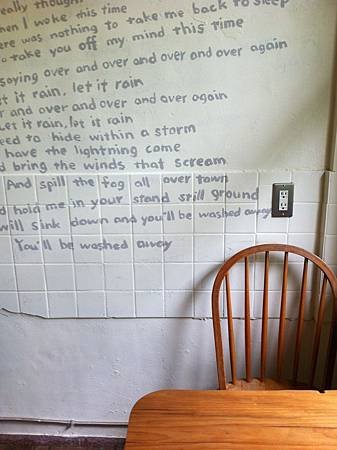 really though
hen I woke this time
ere was nothing to take me back to sleep
o take you off my mind this time
saying over and over and over and over again
t it rain, let it rain
r and over and over and over again
Let it rain, let it rain
eed to hide within a storm
have the lightning come
d bring the winds that scream
And spill the fog all over town
d hold me in your stand still ground
will sink down and you'll be washed away
You'll be washed away